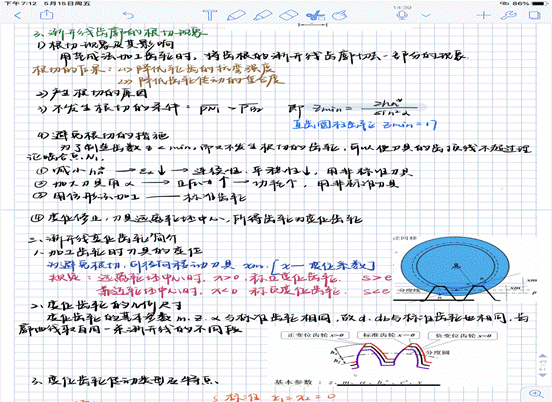 下午7:12 5月15日周五
14:30
86%
3、渐开线齿廓的根切现象
1) 根切现象及其影响
用范成法加工齿轮时,将齿根的渐开线齿廓切去一部分的现象
根切的后果:(1) 降低轮齿的抗弯强度
(2) 降低轮齿传动的重合度
2) 产生根切的原因
3) 不发生根切的条件: 即 Zmin = 2ha*/sin²α
直齿圆柱齿轮 Zmin=17
4) 避免根切的措施
为了制造齿数 z<zmin,而又不发生根切的齿轮,可以使刀具的齿顶线不超过理论啮合点N₁
① 减小ha* → εα↓ → 连续性、平稳性↓,用非标准刀具
② 加大刀具角α → 正压力↑ → 功耗↑,用非标准刀具
③ 变位修正,刀具远离轮坯中心,所得齿轮为变位齿轮
二、渐开线变位齿轮简介
1、加工齿轮时刀具的变位
为避免根切,可径向移动刀具 xm [x—变位系数]
规定:远离轮坯中心时,x>0,称正变位齿轮. s>e
靠近轮坯中心时,x<0 称负变位齿轮. s<e
分度线
xm
2、变位齿轮的几何尺寸
变位齿轮的基本参数m、z、α与标准齿轮相同,故d、db与标准齿轮也相同,齿廓曲线取自同一条渐开线的不同段
正变位齿轮 x>0
标准齿轮 x=0
负变位齿轮 x<0
分度圆
3、变位齿轮传动类型及特点
基本参数:z、m、α、h*、c*、x
标准 x₁=x₂=0